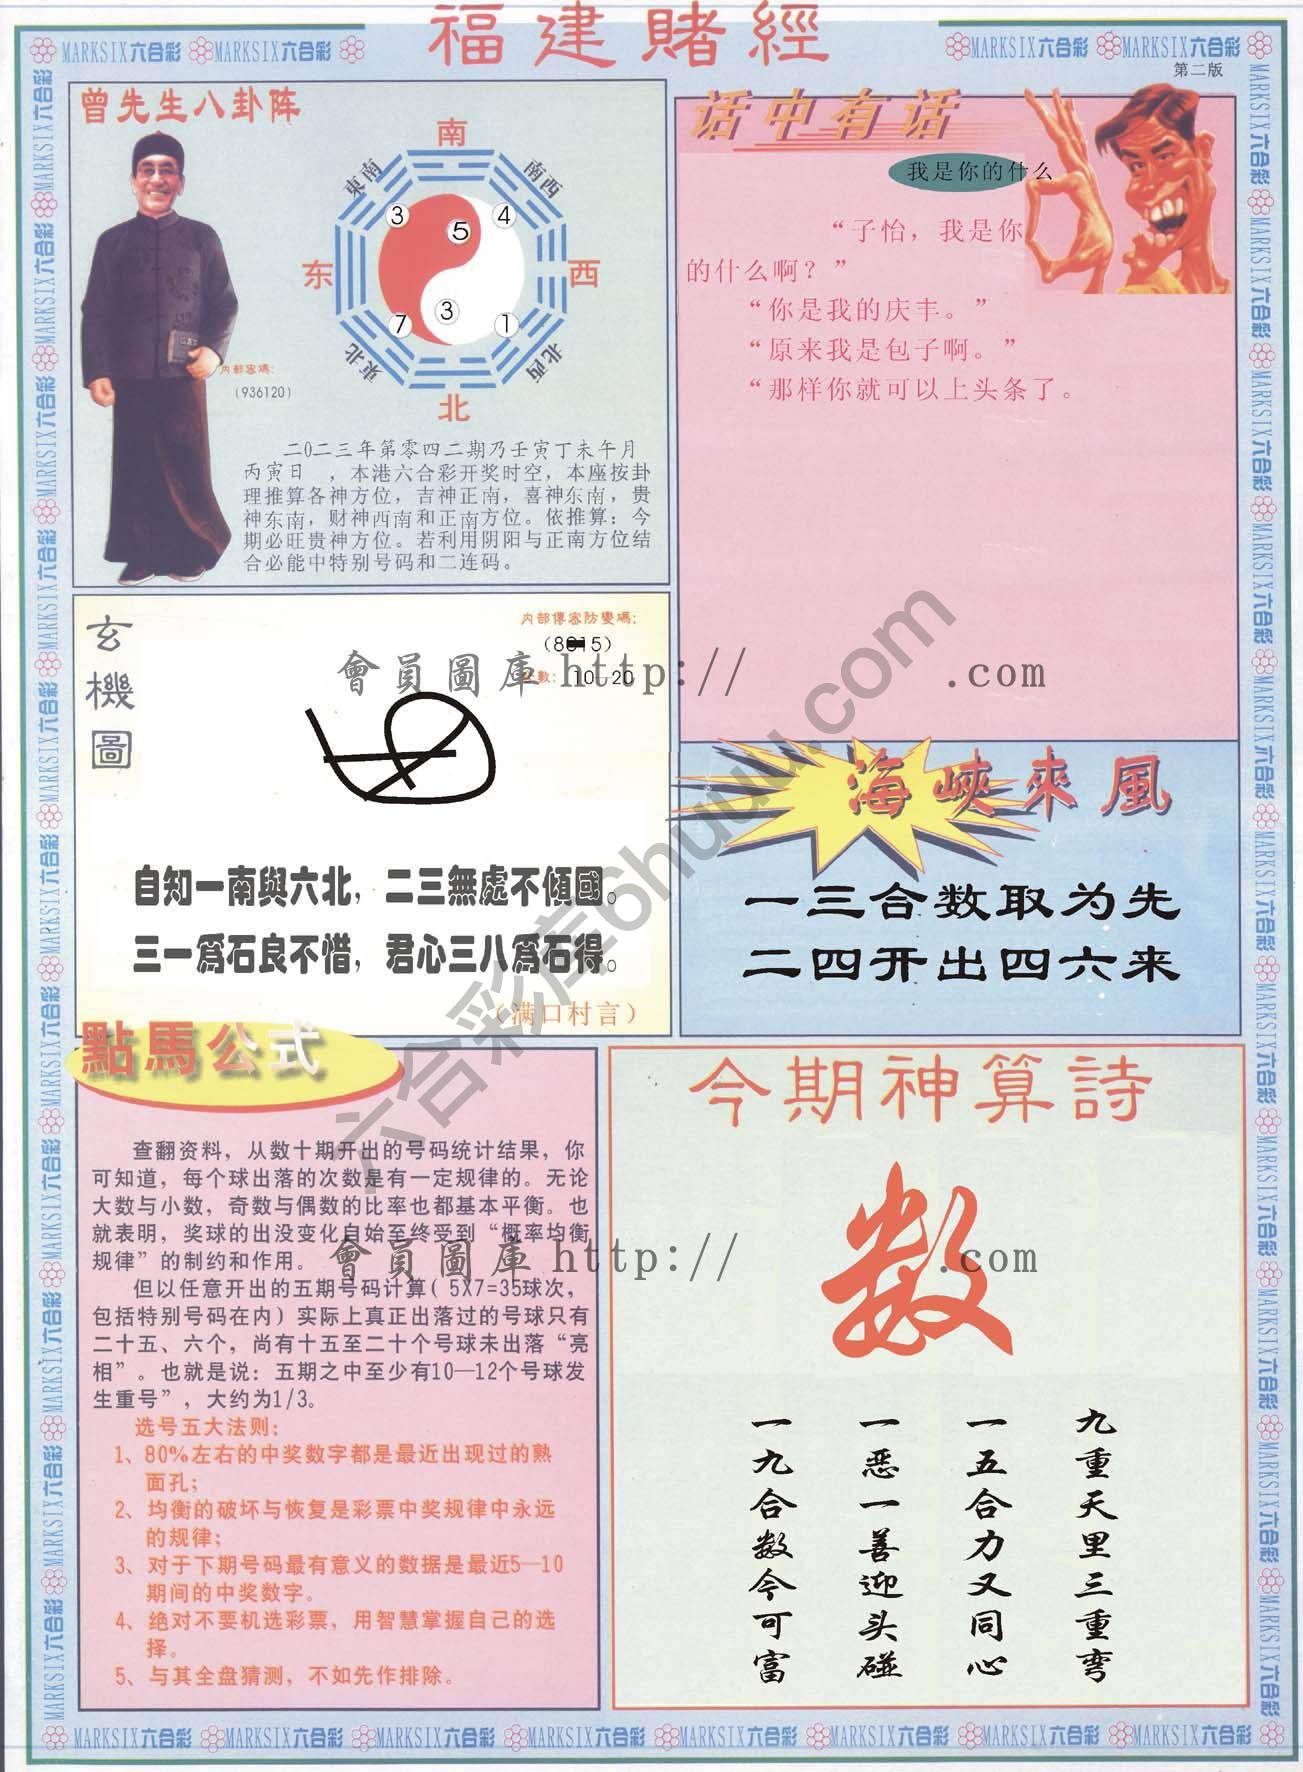 福建賭經
MARKSIX六合彩 MARKSIX六合彩
MARKSIX六合彩 MARKSIX六合彩
第二版
曾先生八卦阵
南
東南
南西
3
5
4
东
西
7
3
1
東北
北西
北
内部密碼:
(936120)
二O二三年第零四二期乃壬寅丁未午月
丙寅日 ,本港六合彩开奖时空,本座按卦
理推算各神方位,吉神正南,喜神东南,贵
神东南,财神西南和正南方位。依推算:今
期必旺贵神方位。若利用阴阳与正南方位结
合必能中特别号码和二连码。
话中有话
我是你的什么
“子怡,我是你
的什么啊?”
“你是我的庆丰。”
“原来我是包子啊。”
“那样你就可以上头条了。
玄機圖
内部傳密防變碼:
數: 10-20
自知一南與六北,二三無處不傾國。
三一爲石良不惜,君心三八爲石得。
(满口村言)
海峽來風
一三合数取为先
二四开出四六来
點馬公式
查翻资料,从数十期开出的号码统计结果,你
可知道,每个球出落的次数是有一定规律的。无论
大数与小数,奇数与偶数的比率也都基本平衡。也
就表明,奖球的出没变化自始至终受到“概率均衡
规律”的制约和作用。
但以任意开出的五期号码计算(5X7=35球次,
包括特别号码在内)实际上真正出落过的号球只有
二十五、六个,尚有十五至二十个号球未出落“亮
相”。也就是说:五期之中至少有10—12个号球发
生重号”,大约为1/3。
选号五大法则:
1、80%左右的中奖数字都是最近出现过的熟
面孔;
2、均衡的破坏与恢复是彩票中奖规律中永远
的规律;
3、对于下期号码最有意义的数据是最近5—10
期间的中奖数字。
4、绝对不要机选彩票,用智慧掌握自己的选
择。
5、与其全盘猜测,不如先作排除。
今期神算詩
数
九重天里三重弯
一五合力又同心
一恶一善迎头碰
一九合数今可富
會員圖庫 http:// .com
會員圖庫 http:// .com
六合彩库6huuu.com
MARKSIX六合彩 MARKSIX六合彩 MARKSIX六合彩 MARKSIX六合彩 MARKSIX六合彩 MARKSIX六合彩 MARKSIX六合彩 MARKSIX六合彩